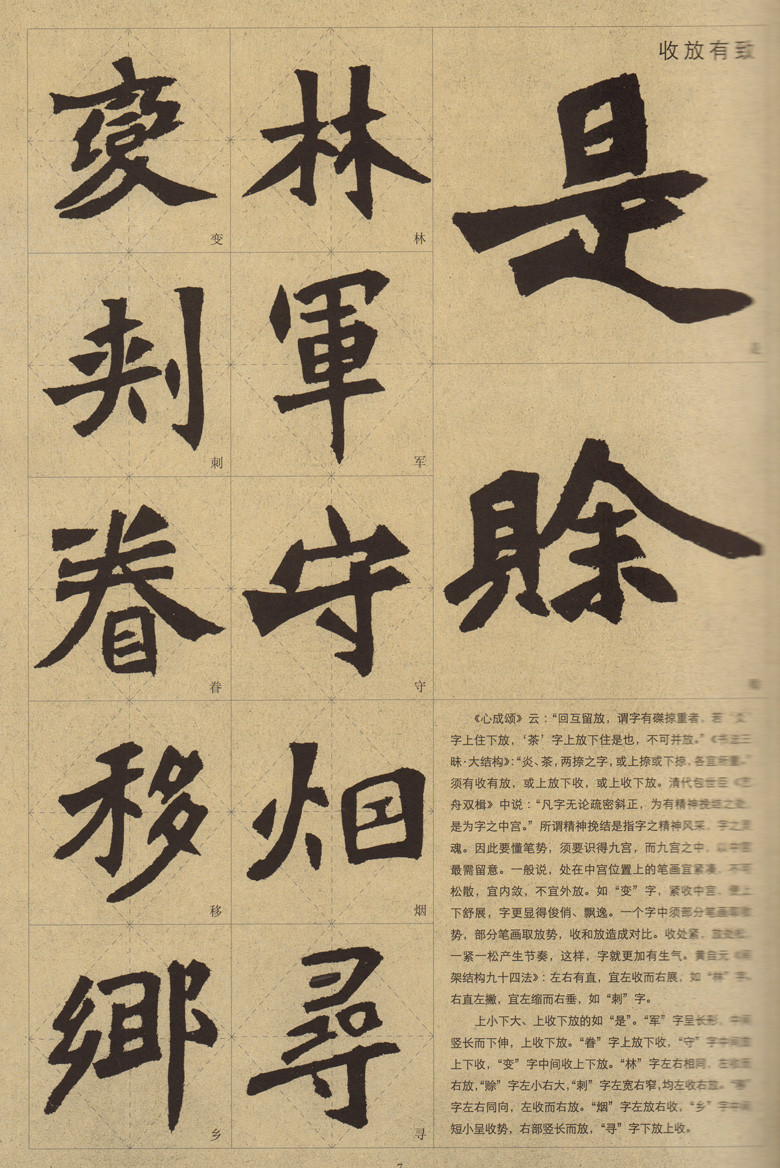 收放有致
是
是
賖
林
林
軍
军
守
守
烟
烟
尋
寻
變
变
刺
刺
眷
眷
移
移
鄉
乡
《心成颂》云：“回互留放，谓字有磔掠重者，若‘炎’
字上住下放，‘茶’字上放下住是也，不可并放。”《书法三
昧·大结构》：“炎、茶，两捺之字，或上捺或下捺，各宜所重。”
须有收有放，或上放下收，或上收下放。清代包世臣《艺
舟双楫》中说：“凡字无论疏密斜正，为有精神挽结之处，
是为字之中宫。”所谓精神挽结是指字之精神风采，字之灵
魂。因此要懂笔势，须要识得九宫，而九宫之中，以中宫
最需留意。一般说，处在中宫位置上的笔画宜紧凑，不可
松散，宜内敛，不宜外放。如“变”字，紧收中宫，便上
下舒展，字更显得俊俏、飘逸。一个字中须部分笔画取收
势，部分笔画取放势，收和放造成对比。收处紧，放处松，
一紧一松产生节奏，这样，字就更加有生气。黄自元《间
架结构九十四法》：左右有直，宜左收而右展，如“林”字。
右直左撇，宜左缩而右垂，如“刺”字。
上小下大、上收下放的如“是”。“军”字呈长形，中间
竖长而下伸，上收下放。“眷”字上放下收，“守”字中间放
上下收，“变”字中间收上下放。“林”字左右相同，左收而
右放，“赊”字左小右大，“刺”字左宽右窄，均左收右放。“移”
字左右同向，左收而右放。“烟”字左放右收，“乡”字中间
短小呈收势，右部竖长而放，“寻”字下放上收。